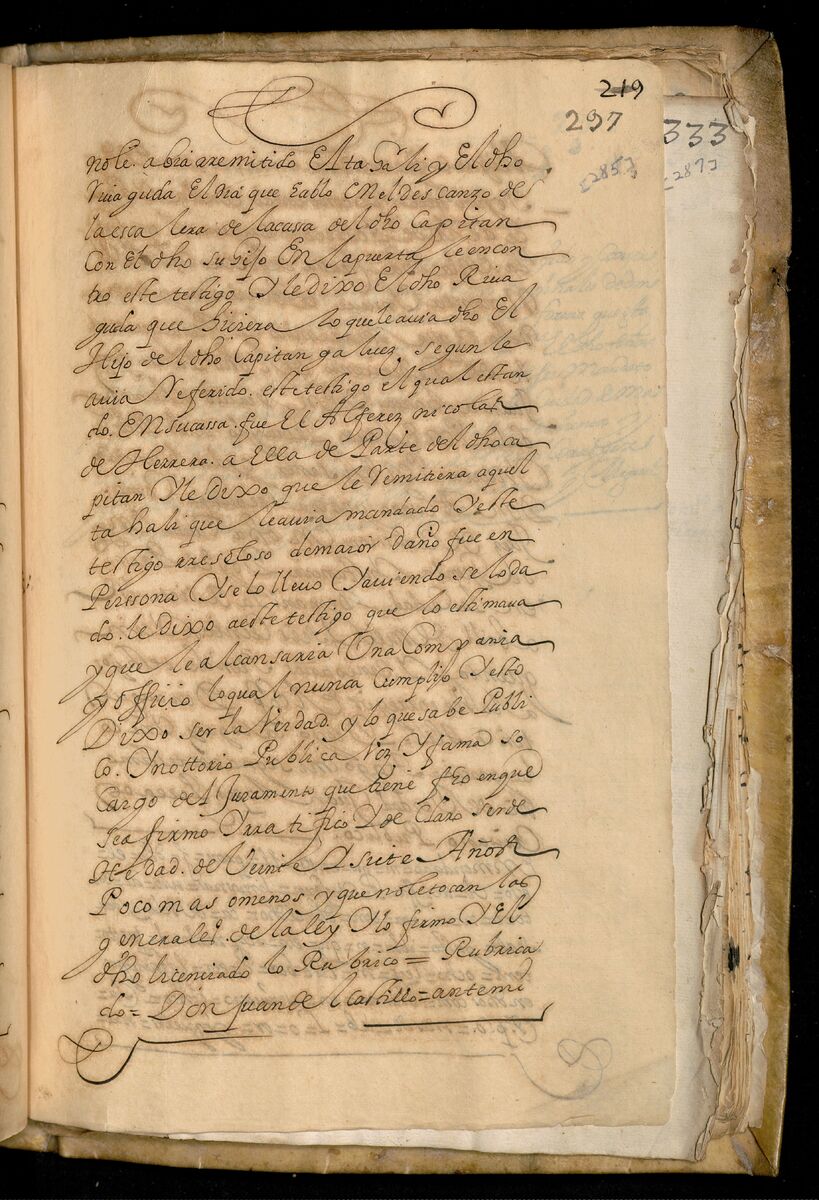 219
297
333
[285]
[287]
nole. abia rremitido El tahali y El dho
Riva guda El dia que hablo en el descanzo de
la escalera de la cassa del dho Capitan
Con El dho su hijo En la puerta le encon
tro este testigo Y le dixo El dho Riva
guda que hiciera lo que le avia dho El
Hijo del dho Capitan galuez, segun le
avia Referido. este testigo el qual estan
do. En su cassa. fue El Alferez nicolas
de Herrera. a Ella de Parte del dho ca
pitan Y le Dixo que le Remitiera aquel
tahali que le avia mandado Y este
testigo rreseloso de maior daño fue en
Perssona Y se lo llevo Y aviendo se lo da
do. le Dixo a este testigo que lo estimava
y que le alcansaria Una Compania
y officio lo qual nunca Cumplio Y esto
Dixo ser la Verdad. y lo que sabe Publi
co. Y nottorio Publica Voz Y fama so
Cargo del Juramento que tiene fho en que
se afirmo Y rratifico Y de Claro ser de
Hedad. de Veinte Y siete Años
Poco mas o menos y que no le tocan las
generales. de la ley Y lo firmo Y El
dho licenciado lo Rubrico = Rubrica
do = Don Juan del Castillo = ante mi